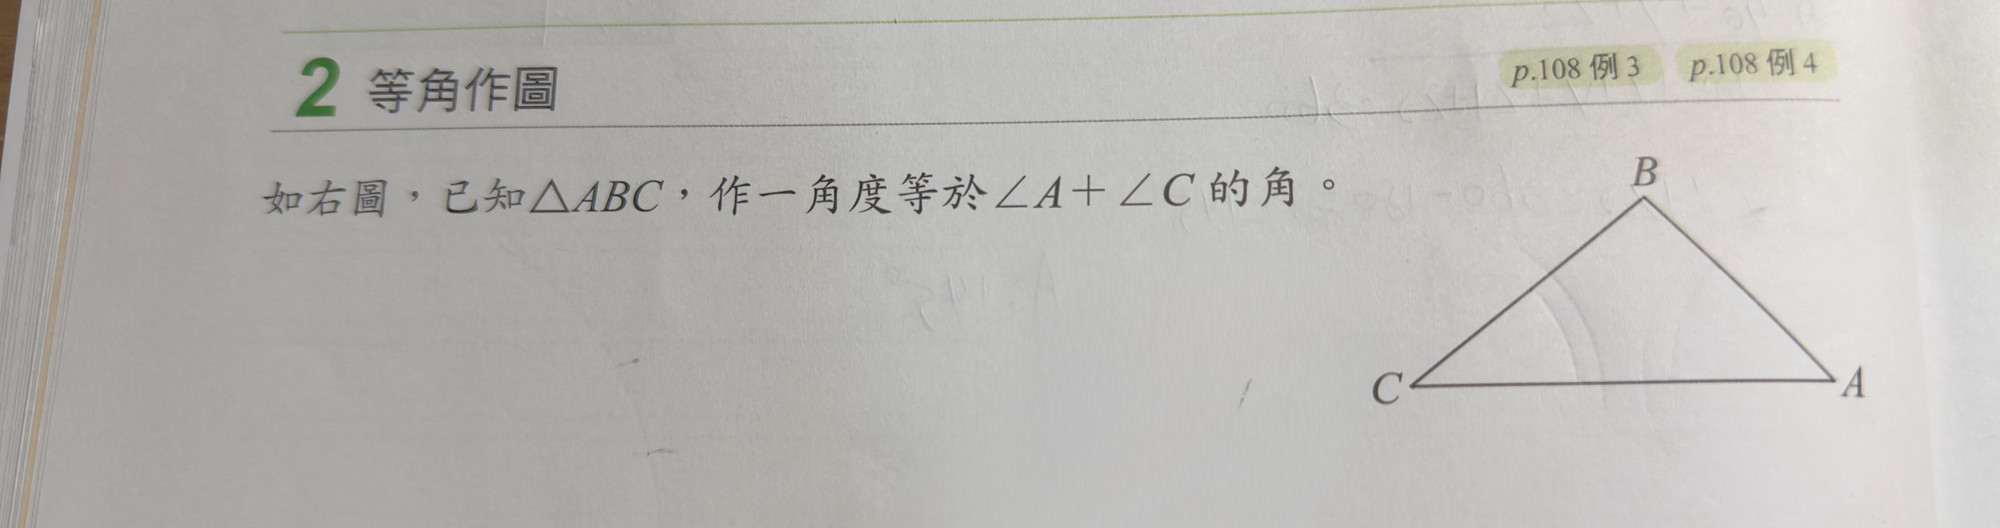 2 等角作圖
p.108 例 3 p.108 例 4
如右圖，已知△ABC，作一角度等於∠A＋∠C 的角。
B
C
A